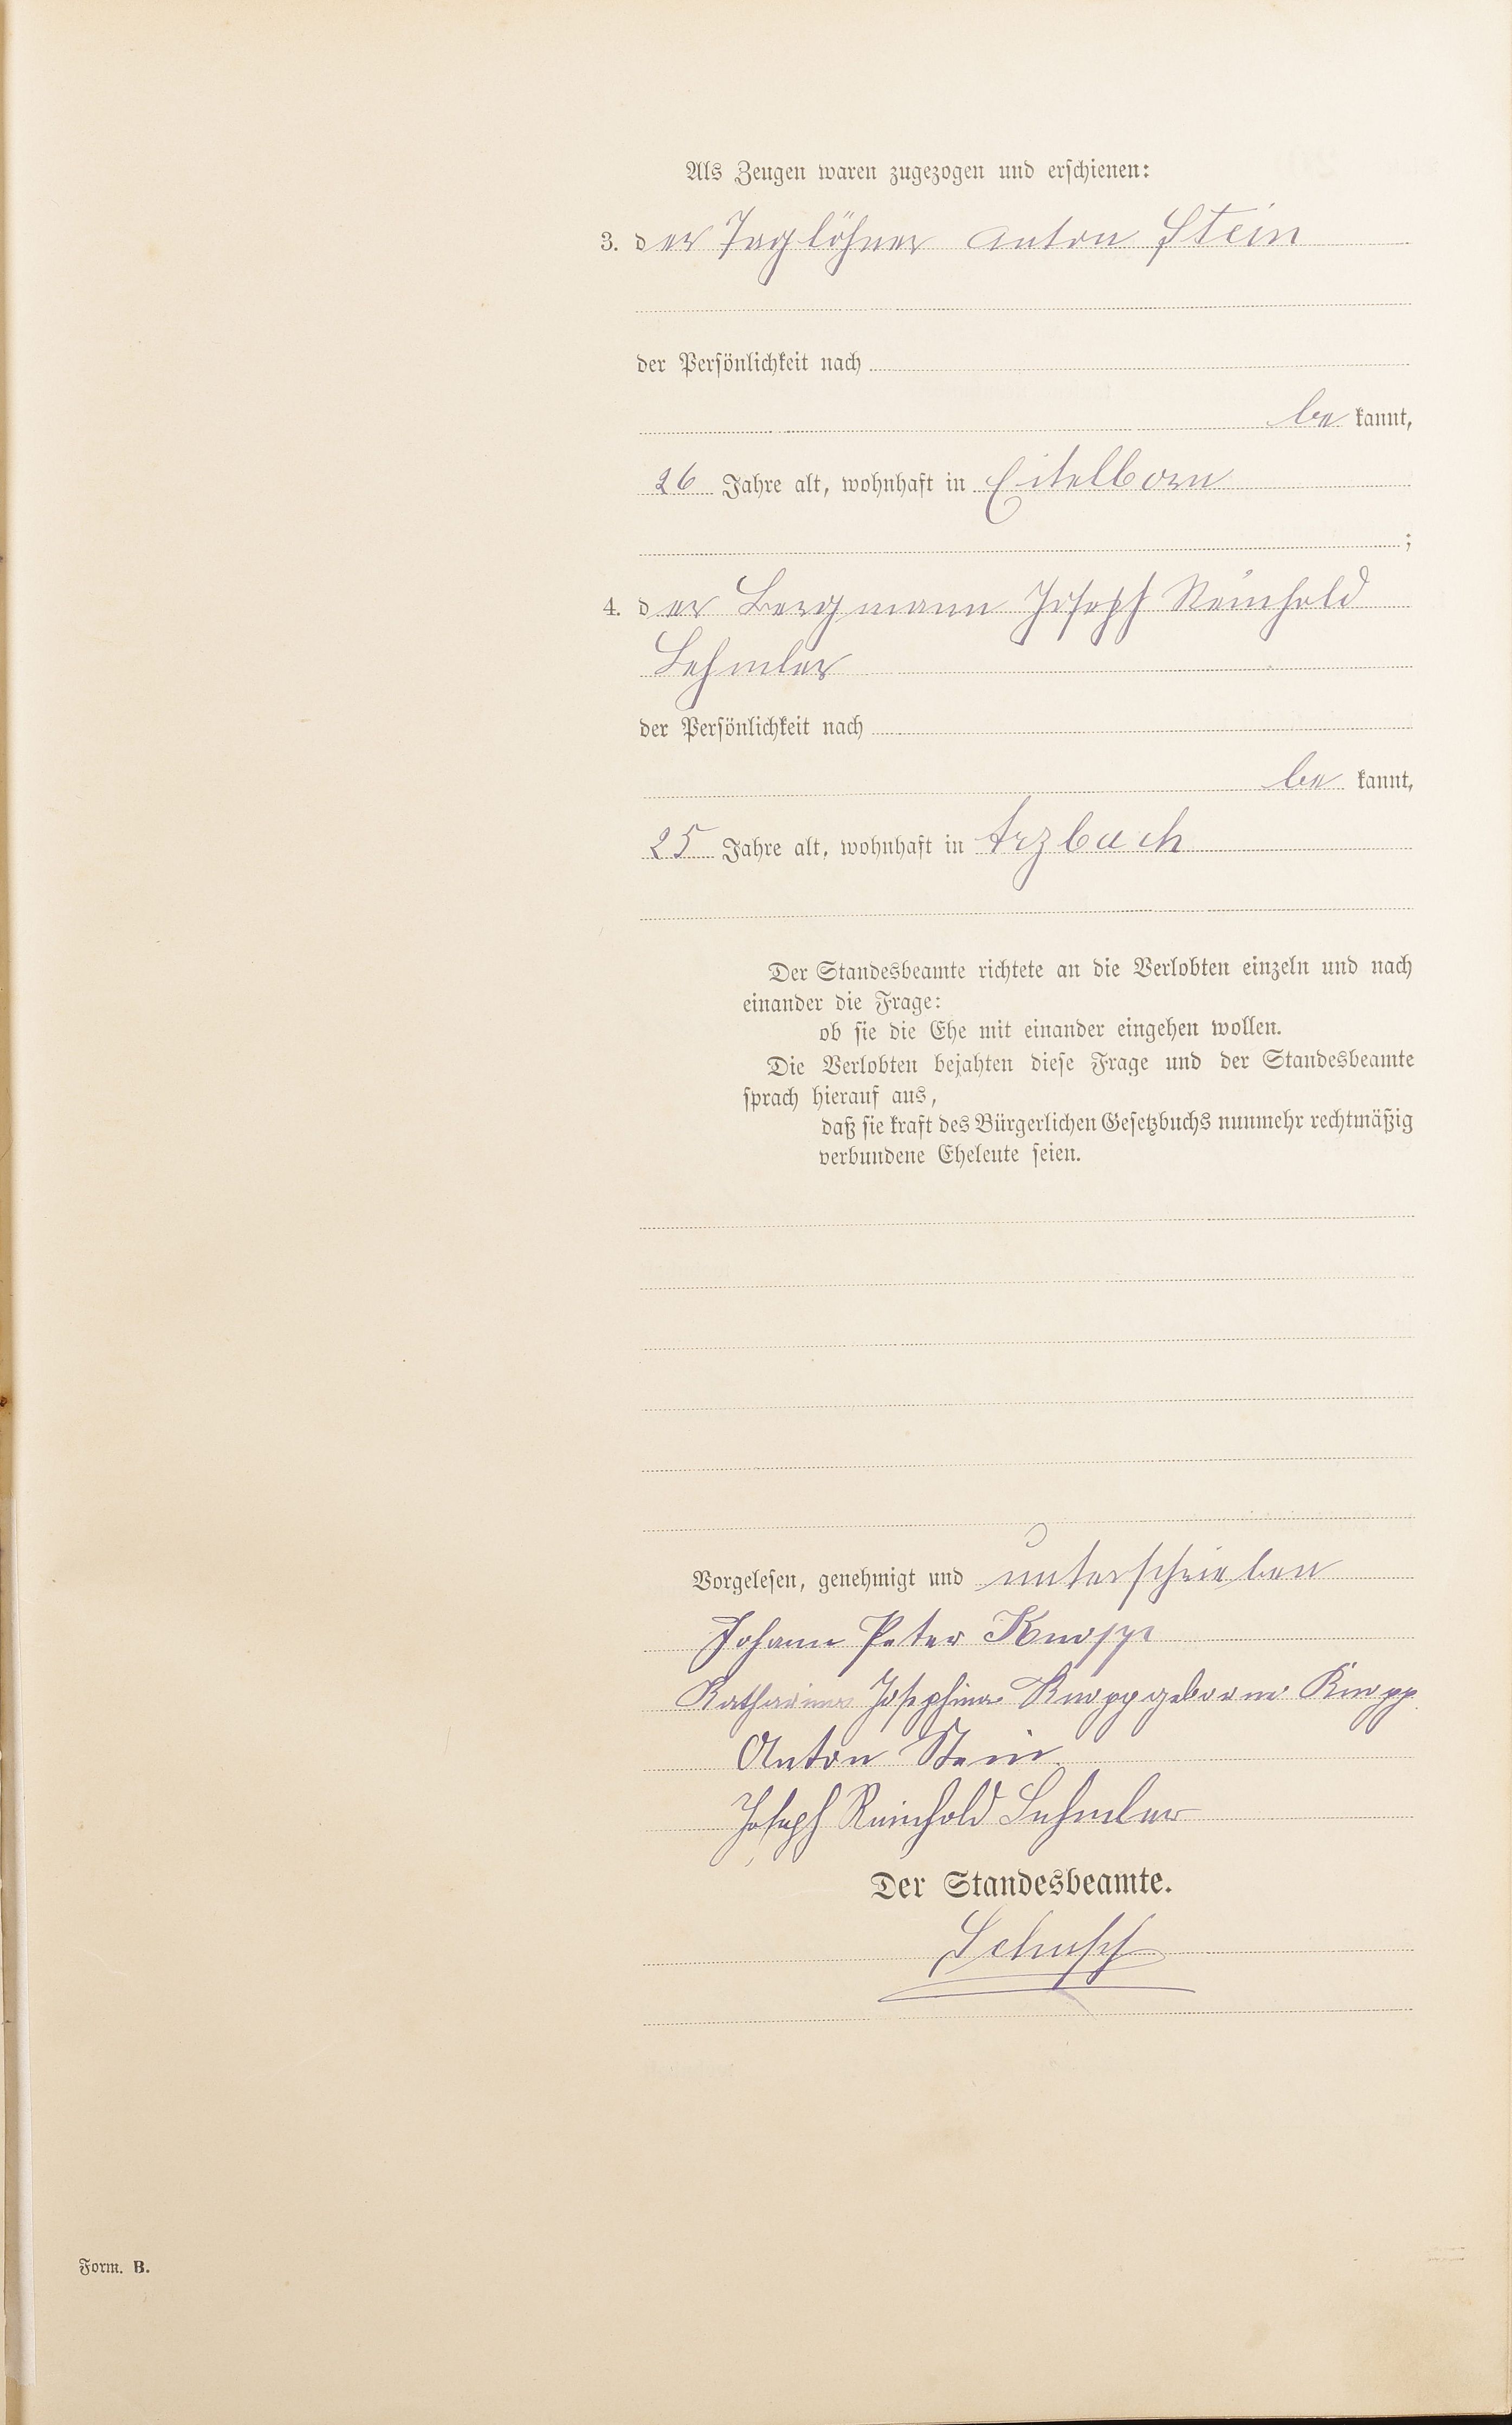 Als Zeugen waren zugezogen und erschienen:
3. der Taglöhner Anton Stein
der Persönlichkeit nach
be kannt,
26 Jahre alt, wohnhaft in Eitelborn
;
4. der Bergmann Joseph Reinhold
Lehmler
der Persönlichkeit nach
be kannt,
25 Jahre alt, wohnhaft in Arzbach
Der Standesbeamte richtete an die Verlobten einzeln und nach
einander die Frage:
ob sie die Ehe mit einander eingehen wollen.
Die Verlobten bejahten diese Frage und der Standesbeamte
sprach hierauf aus,
daß sie kraft des Bürgerlichen Gesetzbuchs nunmehr rechtmäßig
verbundene Eheleute seien.
Vorgelesen, genehmigt und unterschrieben
Johann Peter Knopp
Katharina Josephina Knopp geborne Knopp.
Anton Stein.
Joseph Reinhold Lehmler
Der Standesbeamte.
Form. B.